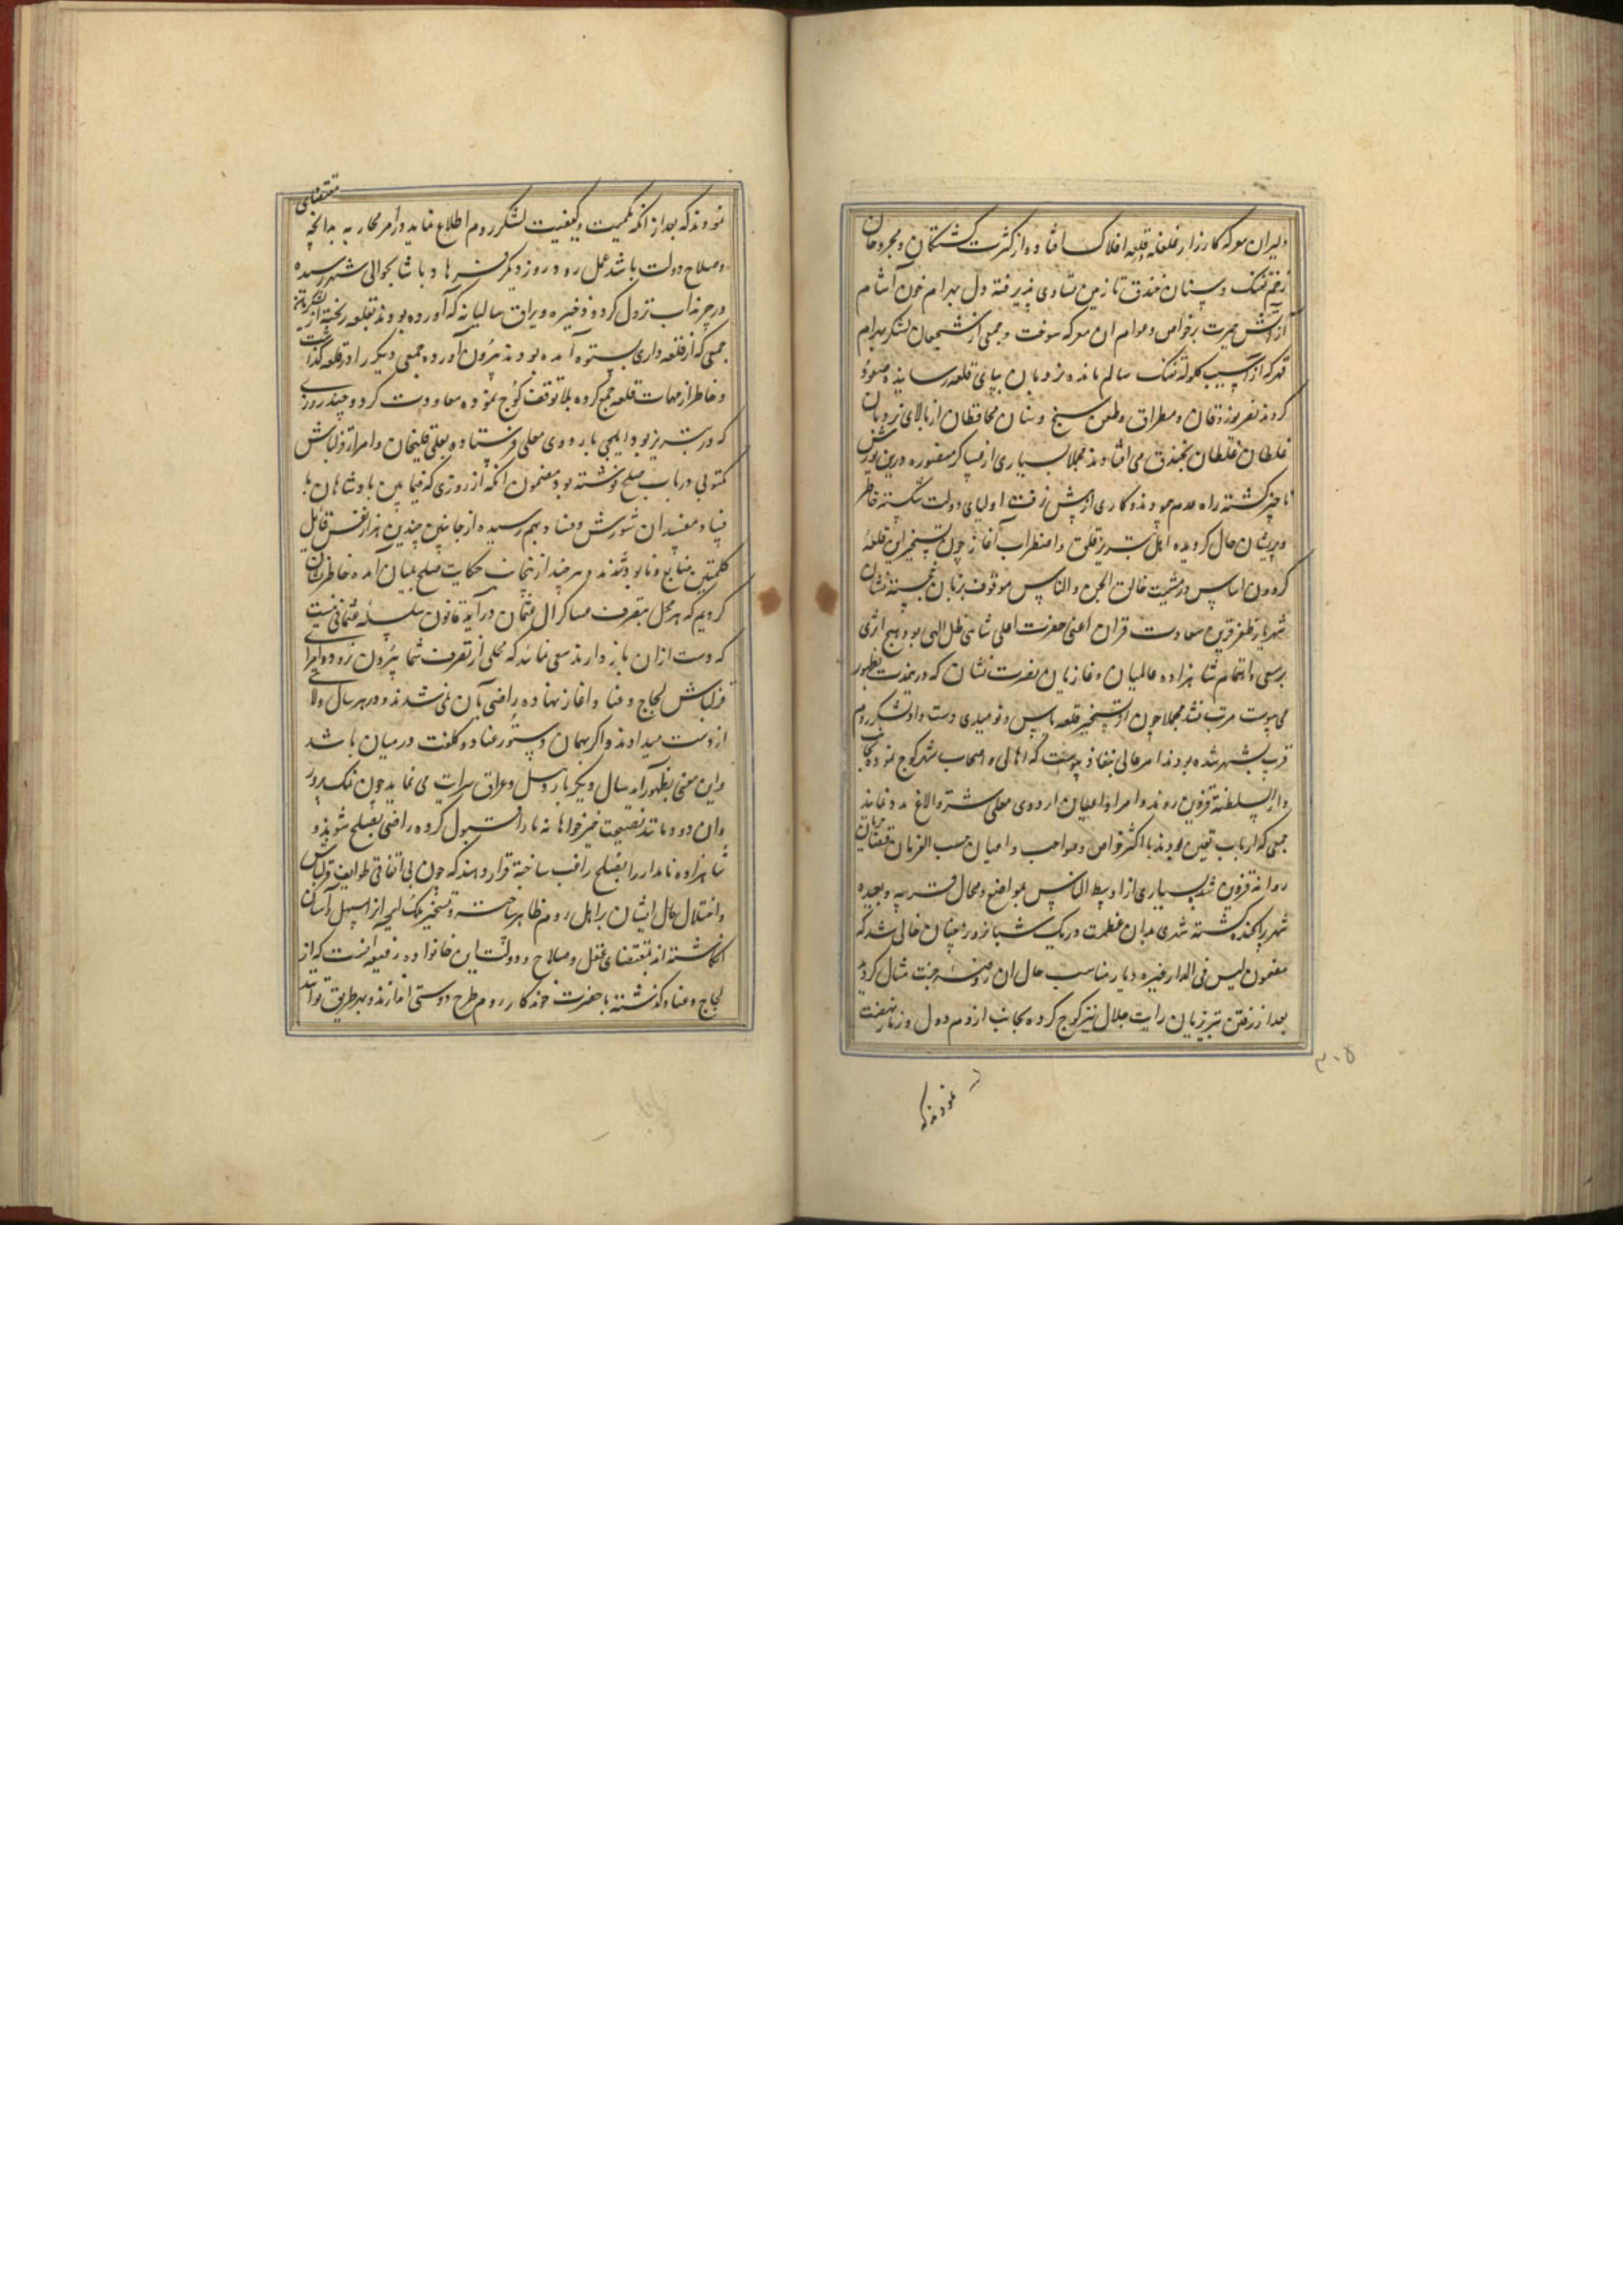 دلیران معرکه کارزار غلغله در قلعه افلاک افتاده و از کثرت کشتگان و مجروحان
زخم تفنک و سنان خندق تا زمین تساوی پذیرفته دل بهرام خون آشام
از آتش حیرت بر خواص و عوام ان معرکه سوخت و جمعی از شجعان لشکر بهرام
قهر که از آسیب کلوله تفنک سالم مانده نردبان بپای قلعه رسانیده صعود
کردند بضرب وزوقان و مطراق و طعن سیخ و سنان محافظان از بالای نردبان
غلطان غلطان بخندق می افتادند مجملا بسیاری از عساکر منصوره درین یورش
ناچیز کشته راه عدم پیمودند و کاری از پیش نرفت اولیای دولت شکسته خاطر
و پریشان حال کردیده اهل تبریز قلق و اضطراب آغاز چون تسخیر این قلعهٔ
کردون اساس در مشیت خالق الجن و الناس موقوف بزمان خجسته نشان
شهریار ظفر قرین سعادت قران اعنی حضرت اعلی شاهی ظل الهی بود هیچ اثری
بر سعی و اهتمام شاهزاده عالمیان و غازیان نصرت نشان که در ینمدت بظهور
می پیوست مرتب نشد مجملا چون از تسخیر قلعه یاس و نومیدی دست داد و لشکر روم
قریب بشهر شده بودند امر عالی بنفاذ پیوست که اهالی و اصحاب شهر کوچ نموده بجانب
دار السلطنه قزوین روند و امرا و اعیان اردوی معلی شتر و الاغ مدد نمایند
جمعی که ارباب تعین بودند با اکثر خواص و مواجب و اعیان حسب الفرمان
روانه قزوین شد بسیاری از اوسط الناس بمواضع و محال قریبه و بعیده
شهر پراکنده کشته شهری بدان عظمت در یک شبانروز چنان خالی شد که
مضمون لیس فی الدار غیره دیار مناسب حال ان روضهٔ جنت مثال کردید
بعد از رفتن تبریزیان رایت جلال نیز کوچ کرده بجانب ازوم دول و زنار نهضت
۳۰۵
نمودند که
نمودند که بعد از انکه بکمیت و کیفیت لشکر روم اطلاع نمایند در امر محاربه بدانچه مقتضای
و صلاح دولت باشد عمل رود روز دیکر فرهاد پاشا بحوالی شهر رسیده
در چرنداب نزول کرد و ذخیره و یراق سالیانه که آورده بودند بقلعه ریخته از لشکریان
جمعی که از قلعه داری بستوه آمده بودند بیرون آورده جمعی دیکر را در قلعه کذاشت
و خاطر از مهمات قلعه جمع کرده بلا توقف کوچ نموده معاودت کرد و چند روزی
که در تبریز بود ایلچی باردوی معلی فرستاده بعلی قلیخان و امراء قزلباش
مکتوبی در باب صلح نوشته بود مضمون انکه از روزی که فیما بین پادشاهان با
فساد مفسدان شورش و فساد بهم رسیده از جانبین چندین هزار نفس قائل
کلمتین ضایع و نابود شدند و هر چند از ینجانب حکایت صلح بمیان آمده خاطر نشان
کردیم که هر محل بتصرف عساکر ال عثمان در آید قانون سلسلهٔ عثمانی نیست
که دست از ان باز دارند سعی نمائید که محلی از تصرف شما بیرون نرود امرای
قزلباش لجاج و عناد اغاز نهاده راضی بآن نمی شدند و در هر سال ولایتی
از دست میدادند و اکر بهمان دستور عناد و کلفت در میان باشد
و این معنی بظهور آمد سال دیکر باردبیل و عراق سرایت می نماید چون نمک پرور
وان دودمانند نصیحت خیرخواهانه ما را قبول کرده راضی بصلح شوید و
شاهزاده نامدار را بصلح راغب ساخته قرار دهند که چون بی اتفاقی طوایف قزلباش
و اختلال حال ایشان را اهل روم ظاهر ساخته و تسخیر ملک ایچه از اسهل و آسان
انکاشته اند بمقتضای عقل و صلاح و دولت این خانواده رفیعه انست که از
لجاج و عناد کذشته با حضرت خوندکار روم طرح دوستی اندازند و بهر طریق تواند